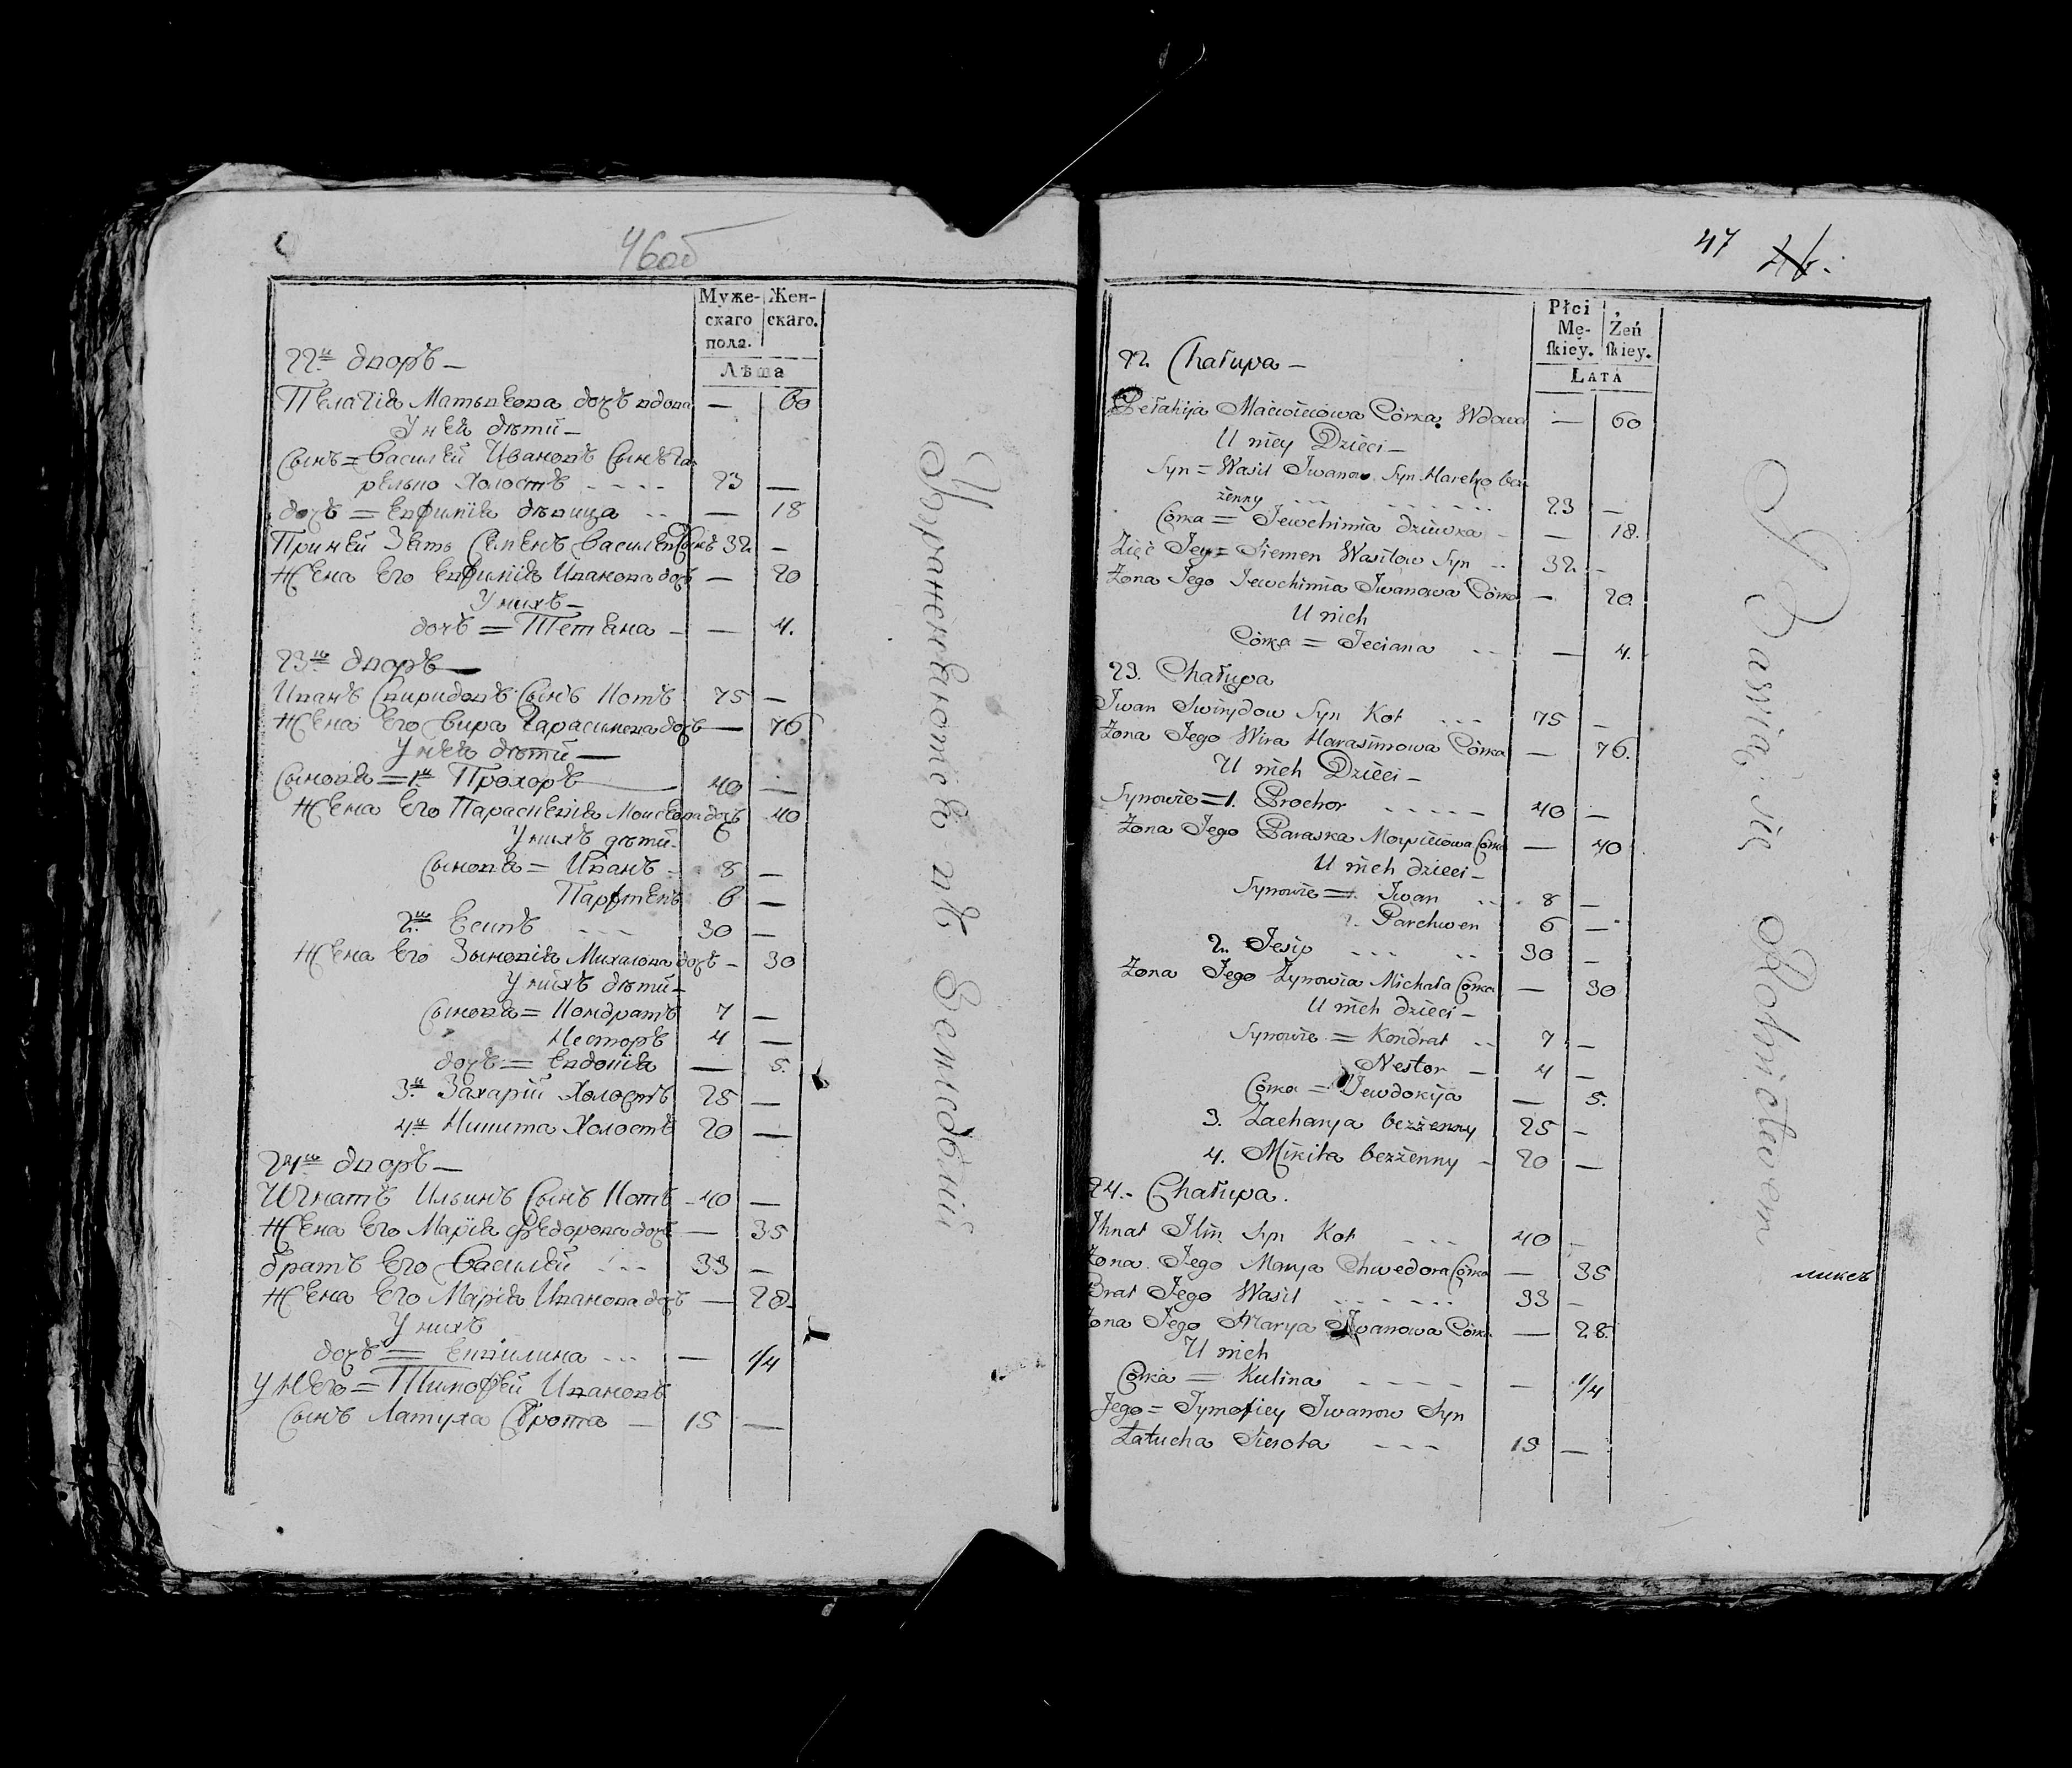 46об
Муже- Жен-
скаго скаго.
пола.
Лѣта
22й дворъ —
Пелагія Матвѣева дочь вдова — 60
У ней дѣти —
Сынъ = Василей Ивановъ Сынъ Га-
релко Холостъ - - - - 23 —
дочь = Евфимія дѣвица - - — 18
При ней Зять Семенъ Василевъ Сынъ 32 —
Жена Его Евфимія Иванова дочь — 20
У нихъ —
дочь = Тетяна — — 4.
23й дворъ —
Иванъ Свиридовъ Сынъ Котъ 75 —
Жена Его Вира Гарасимова дочь — 76
У нея дѣти —
Сыновя = 1й Прохоръ 40 —
Жена Его Параскевія Моисеева дочь 40
У нихъ дѣти — 6
Сыновя = Иванъ - 8 —
Парфтенъ 6 —
2й Есипъ - - - 30 —
Жена Его Зыновія Михалова дочь — 30
У нихъ дѣти —
Сыновя = Кондратъ 7 —
Несторъ 4 —
дочь = Евдокія — 5.
3й Захарій Холостъ 25 —
4й Никита Холостъ 20 —
24й дворъ —
Игнатъ Ильинъ Сынъ Котъ - 40 —
Жена Его Марія Федорова дочь — 35
братъ Его Василей - - - 33 —
Жена Его Марія Иванова дочь — 28.
У нихъ
дочь = - - - — 1/4
У Него = Тимофей Ивановъ
Сынъ Латуха Сірота — 15 —
Упражненяются въ Земледѣліи
47
Płci
Mę- Żeń
skiey. skiey.
LATA
22. Chałupa —
Pełahija Maćwieiowa Córka Wdowa — 60
U niey Dzieci —
Syn = Wasil Iwanow Syn Harelko bez-
żenny - - - - - - - - 23 —
Córka = Jewchimia dziewka - — 18.
Zięć Jey = Siemen Wasilow Syn - - 32 —
Żona Jego Jewchimia Iwanowa Córka — 20.
U nich
Córka = Teciana - - — 4.
23. Chałupa
Iwan Swirydow Syn Kot - - - 75 —
Żona Jego Wira Harasimowa Córka — 76.
U nich Dzieci —
Synowie = 1. Prochor - - - - - 40 —
Żona Jego Paraska Córka — 40
U nich dzieci —
Synowie = 1. Iwan - - 8 —
2. Parchwen 6 —
2. Jesip - - - - - 30 —
Żona Jego Zynowia Michała Córka — 30
U nich dzieci —
Synowie = Kondrat - - 7 —
Nestor - 4 —
Córka = Jewdokija — 5.
3. Zacharya bezżenny 25 —
4. Mikita bezżenny - 20 —
24. - Chałupa.
Ihnat Ilin Syn Kot - - - 40 —
Żona Jego Marya Chwedora Córka — 35
Brat Jego Wasil - - - - - - 33 —
Żona Jego Marya Iwanowa Córka — 28.
U nich
Córka = Kulina - - - - - — 1/4
Jego = Tymofiey Iwanow Syn
Łatucha Sierota - - - 15 —
Bawią się Rolnictwem